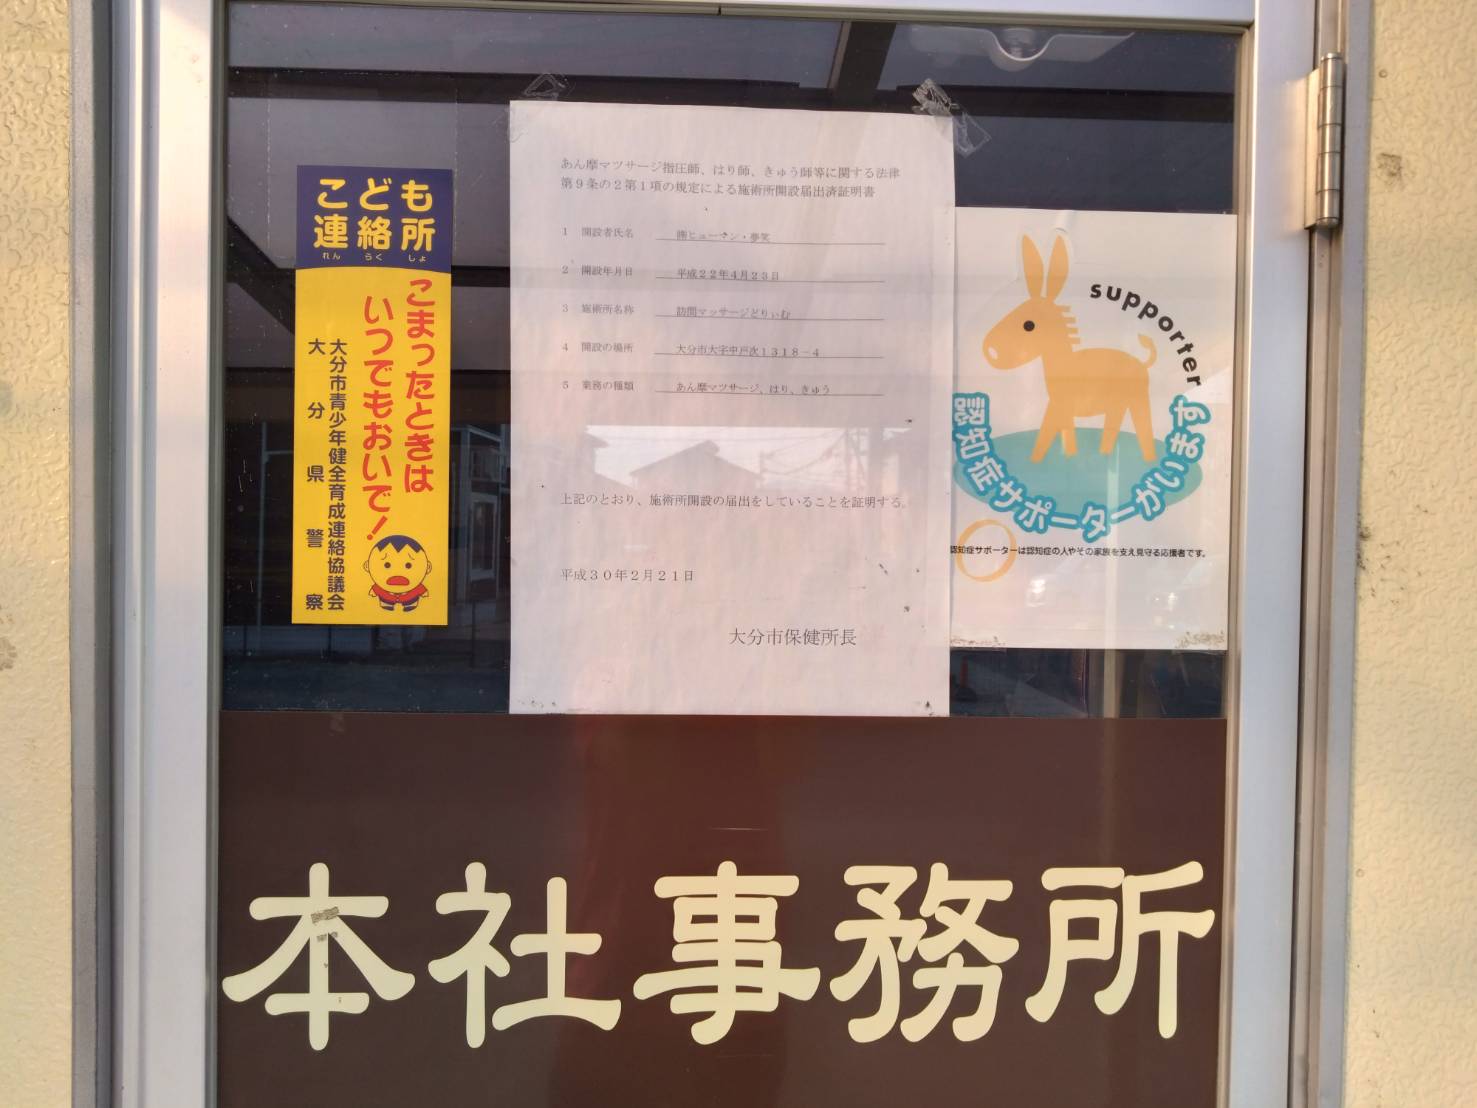 こども
連絡所
れん らく しょ
こまったときは
いつでもおいで!
大分市青少年健全育成連絡協議会
大分県警察
あん摩マツサージ指圧師、はり師、きゅう師等に関する法律
第9条の2第1項の規定による施術所開設届出済証明書
1 開設者氏名 ㈱ヒューマン・夢笑
2 開設年月日 平成22年4月23日
3 施術所名称 訪問マッサージどりぃむ
4 開設の場所 大分市大字中戸次1318-4
5 業務の種類 あん摩マツサージ、はり、きゅう
上記のとおり、施術所開設の届出をしていることを証明する。
平成30年2月21日
大分市保健所長
supporter
認知症サポーターがいます
認知症サポーターは認知症の人やその家族を支え見守る応援者です。
本社事務所